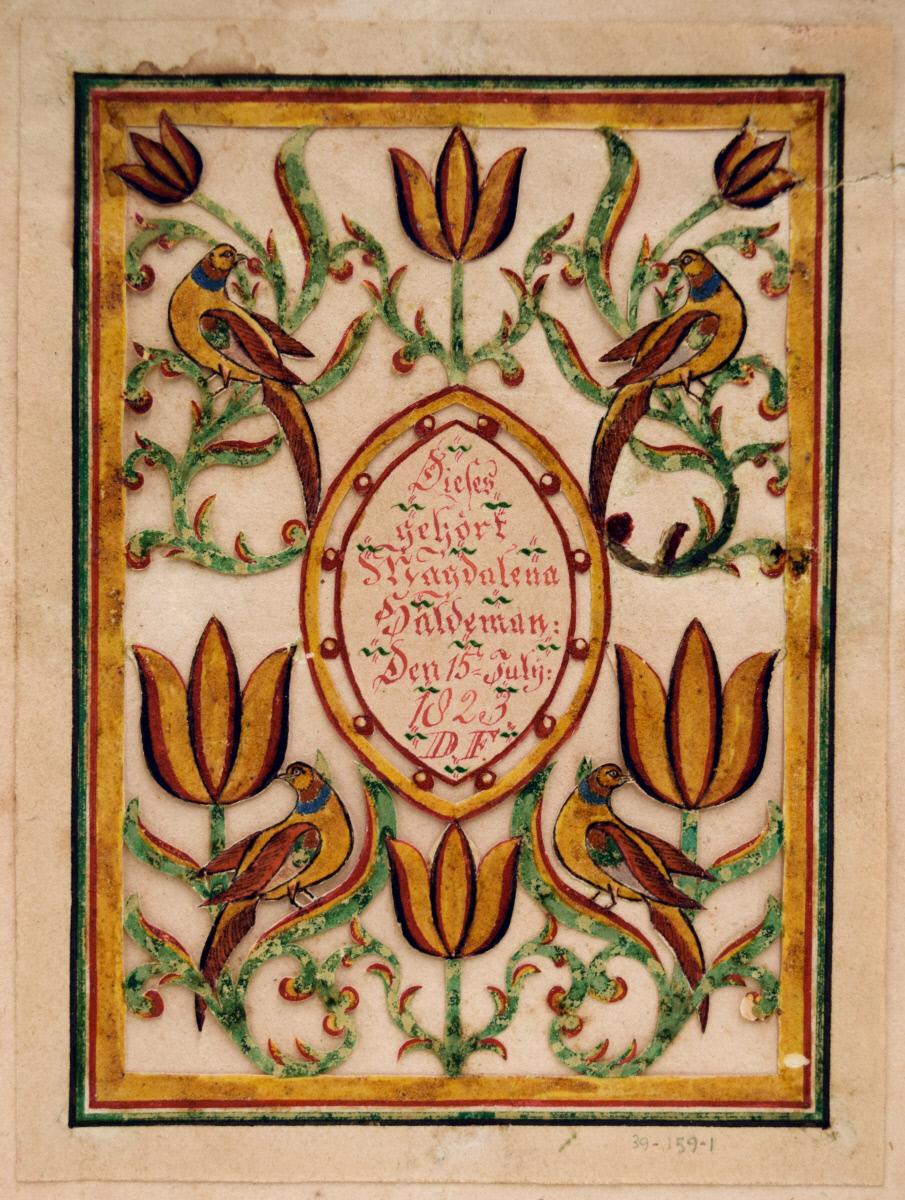 Dieses
gehört
Magdalena
Häldeman:
Den 15= July:
1823
D. F.
39-159-1